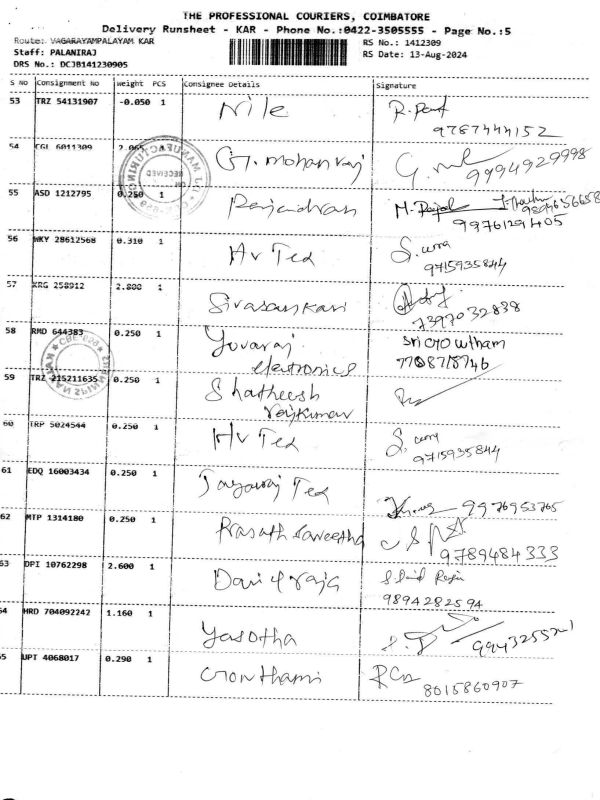 THE PROFESSIONAL COURIERS, COIMBATORE
Delivery Runsheet - KAR - Phone No.:0422-3505555 - Page No.:5
Route: VAGARAYAMPALAYAM KAR
RS No.: 1412309
Staff: PALANIRAJ
RS Date: 13-Aug-2024
DRS No.: DCJB141230905
S No Consignment No weight PCS Consignee Details Signature
53 TRZ 54131907 -0.050 1 Nile
9787444152
54 CGL 6011309 2.065 G. mohanraj
9994929998
55 ASD 1212795 0.250 1 Rajendran
9976129405
56 WKY 28612568 0.310 1 Hv Tex
9715935844
57 KRG 258912 2.800 1 Sivasankari
7397032838
58 RMD 644383 0.250 1 Yuvaraj sri Gowtham
electronics
59 TRZ 215211635 0.250 1 Shatheesh
rajkumar
60 TRP 5024544 0.250 1 Hv Tex
9715935844
61 EDQ 16003434 0.250 1 Jayaraj Tex
9976953765
62 MTP 1314180 0.250 1 Prasath Saveetha
9789484333
63 DPI 10762298 2.600 1 David raja
9894282594
64 HRD 704092242 1.160 1 Yasotha
65 UPT 4068017 0.290 1 Gowthami
8015860907